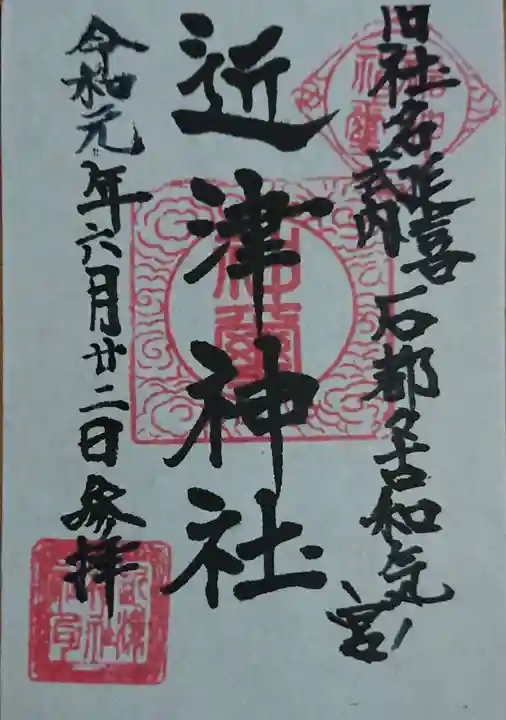 旧社名延喜式内 石都々古和気宮
近津神社
令和元年六月廿二日参拝
神璽